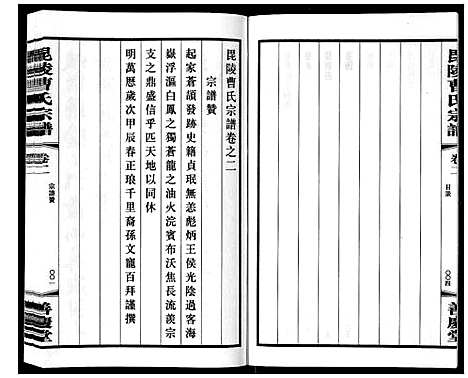 毘陵曹氏宗譜
卷二
目录
〇〇四
善慶堂
毘陵曹氏宗譜卷之二
宗譜贊
起家蒼頡發跡史籍貞珉姜彪炳王侯光陰過客海
嶽浮漚白鳳之獨蒼龍之油火浣賓布沃焦長流羨宗
支之鼎盛信乎匹天地以同休
明萬歷歲次甲辰春正琅千里裔孫文寵百拜謹撰
毘陵曹氏宗譜
卷二
宗譜贊
〇〇一
善慶堂